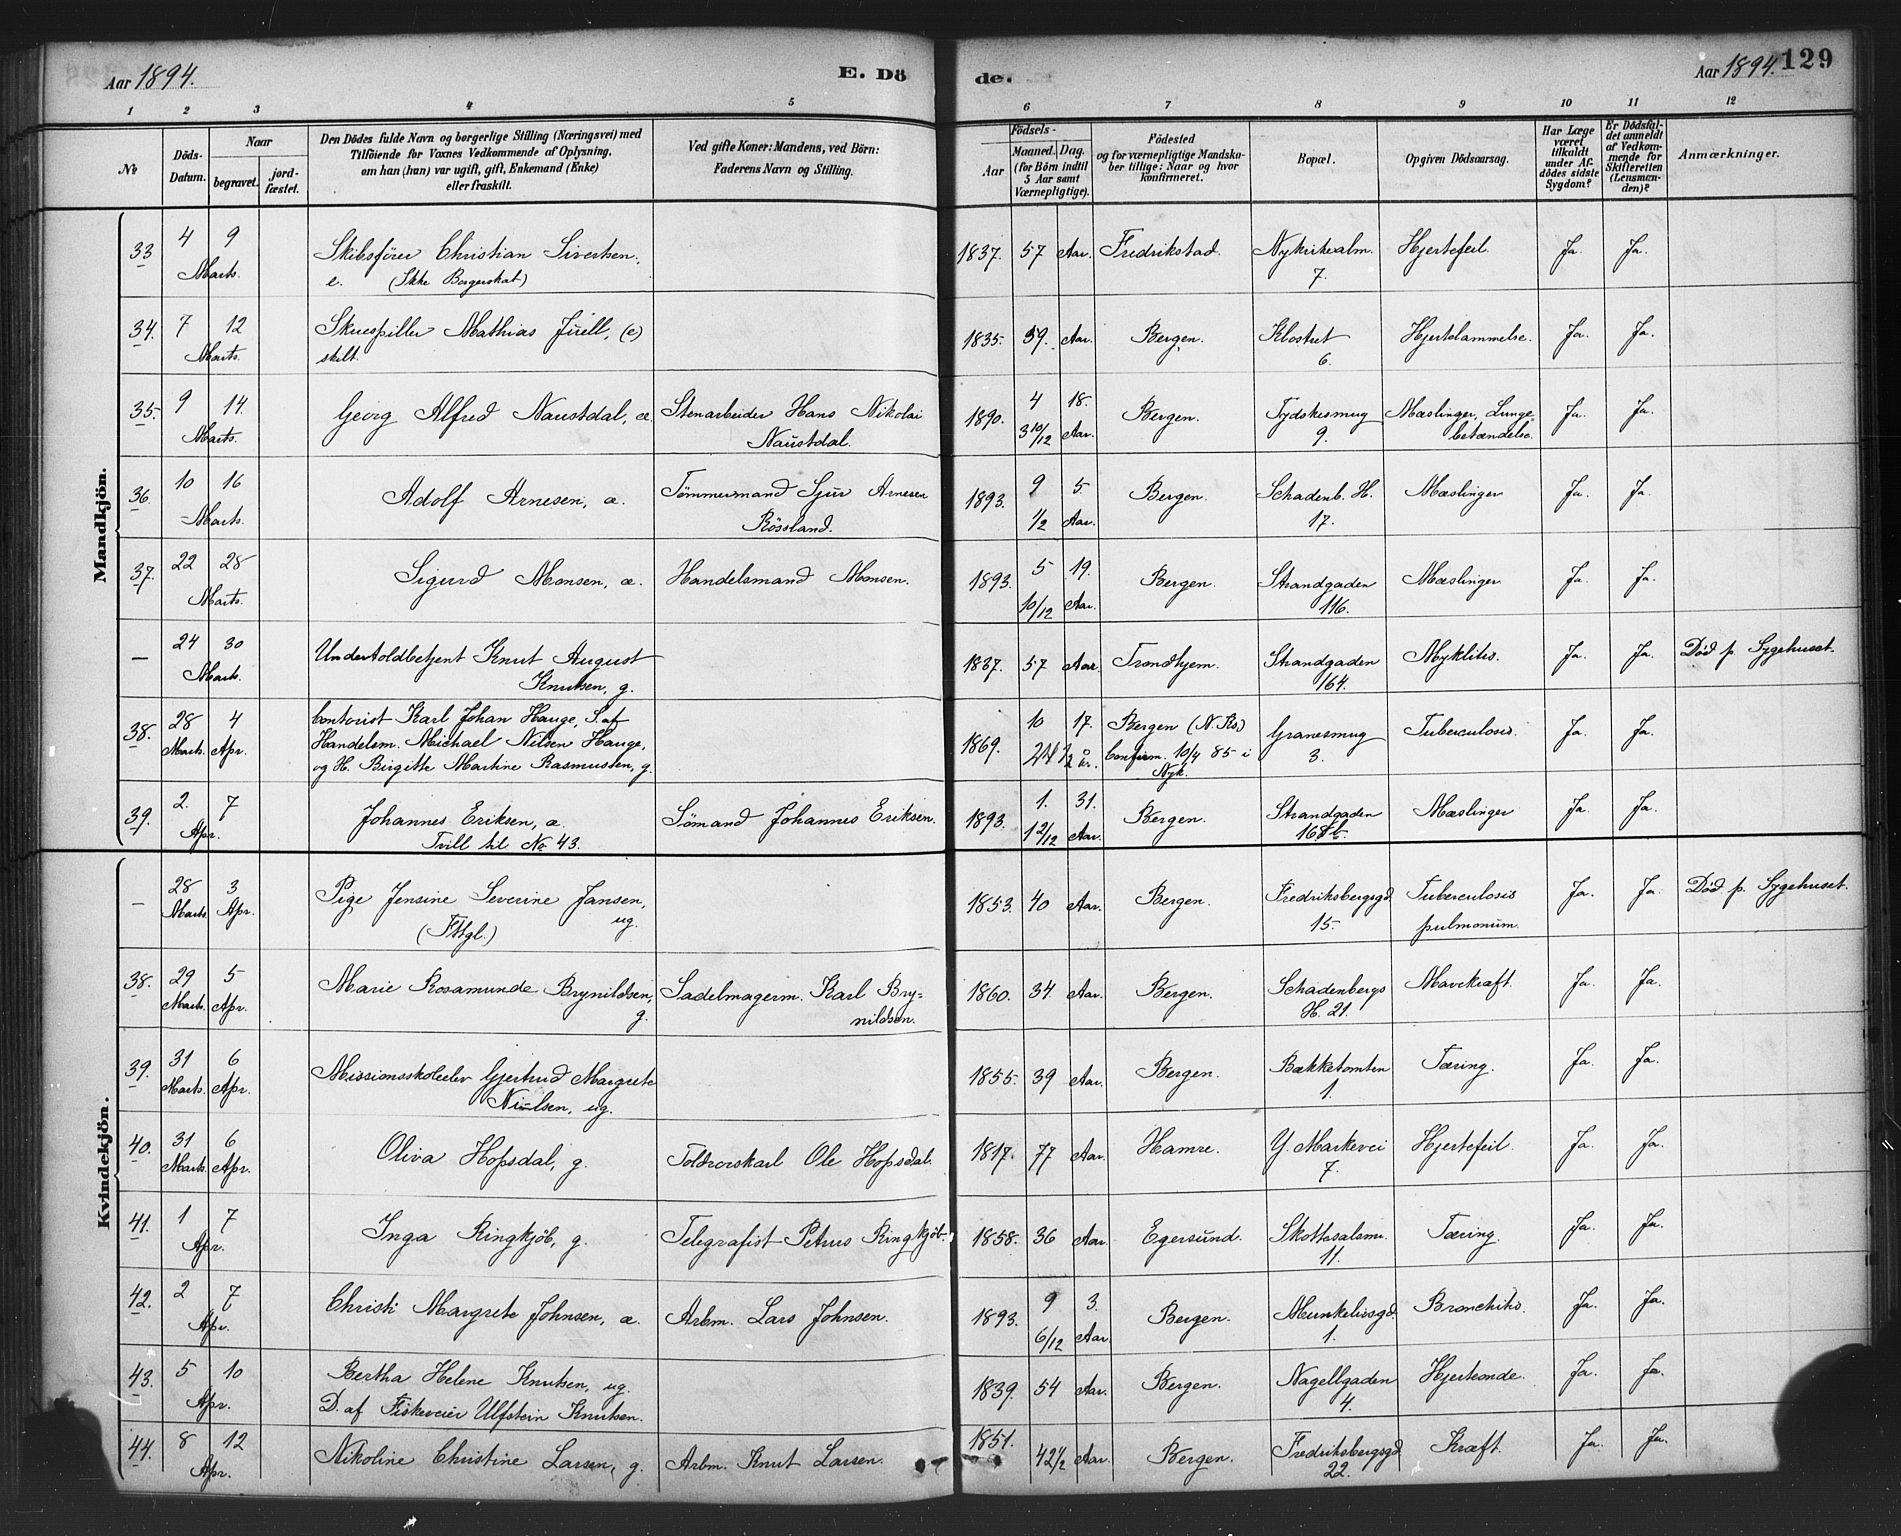 Aar 1894. E. Dö de. Aar 1894. 129
1 2 3 4 5 6 7 8 9 10 11 12
№
Döds-Datum.
Naar
begravet.
jord-fæstet.
Den Dödes fulde Navn og borgerlige Stilling (Næringsvei) med
Tilföiende for Voxnes Vedkommende af Oplysning,
om han (hun) var ugift, gift, Enkemand (Enke)
eller fraskilt.
Ved gifte Koner: Mandens, ved Börn:
Faderens Navn og Stilling.
Födsels-
Aar
Maaned. Dag.
(for Börn indtil
5 Aar samt
Værnepligtige).
Födested
og for værnepligtige Mandska-
ber tillige: Naar og hvor
konfirmeret.
Bopæl.
Opgiven Dödsaarsag.
Har Læge
været
tilkaldt
under Af-
dödes sidste
Sygdom?
Er Dödsfal-
det anmeldt
af Vedkom-
mende for
Skifteretten
(Lensman-
den)?
Anmærkninger.
Mandkjön.
33 4 9 Skibsfører Christian Sivertsen, 1837. 57 Aar. Fredrikstad. Nykirkealm. Hjertefeil. Ja. Ja.
Marts. e. (Ikke Borgerskab) 7.
34. 7 12 Skuespiller Mathias Juell, (e) 1835. 59. Aar. Bergen. Klostret Hjertelammelse. Ja. Ja.
Marts. skilt. 6.
35. 9 14. Georg Alfred Naustdal, æ. Stenarbeider Hans Nikolai 1890. 4 18. Bergen. Tydskesmug Mæslinger, Lunge- Ja. Ja.
Marts. Naustdal. 3 10/12 Aar. 9. betændelse.
36. 10 16 Adolf Arnesen, æ. Tømmermand Sjur Arnesen 1893. 9 5. Bergen. Schadenb. H. Mæslinger Ja. Ja.
Marts. Røssland. 1/2 Aar. 17.
37. 22 28 Sigurd Monsen, æ. Handelsmand Monsen. 1893. 5 19. Bergen. Strandgaden Mæslinger Ja. Ja.
Marts. 10/12 Aar. 116.
— 24 30 Undertoldbetjent Knut August 1837. 57 Aar. Trondhjem. Strandgaden Myklitis. Ja. Ja. Død p. Sygehuset.
Marts. Knutsen, g. 164.
38. 28 4 Contorist Karl Johan Hauge, S. af 1869. 10 17. Bergen (N. Ks.) Granesmug Tuberculosis. Ja. Ja.
Marts. Apr. Handelsm. Michael Nilsen Hauge, 24 1/2 år. Confirm. 10/4 85 i 3.
og H. Birgitte Martine Rasmussen, g. Nyk.
39. 2. 7 Johannes Eriksen, æ. Sømand Johannes Eriksen. 1893. 1. 31. Bergen. Strandgaden Mæslinger Ja Ja.
Apr. Tvill. til No 43. 1 2/12 Aar. 168b.
Kvindekjön.
— 28 3 Pige Jensine Severine Jansen, 1853. 40 Aar. Bergen. Fredriksbergsgd. Tuberculosis Ja. Ja. Død p. Sygehuset.
Marts Apr. (Fttgl.) ug. 15. pulmonum.
38. 29 5 Marie Rosamunde Brynildsen, Sadelmagerm. Karl Bry- 1860. 34. Aar. Bergen. Schadenbergs Mavekræft. Ja. Ja.
Marts. Apr. g. nildsen. H. 21.
39. 31 6 Missionsskoleelev Gjertrud Margrete 1855. 39 Aar. Bergen. Bakketomten Tæring. Ja. Ja.
Marts. Apr. Nielsen, ug. 1.
40. 31 6 Oliva Hopsdal, g. Toldrorskarl Ole Hopsdal. 1817. 77 Aar. Hamre. Y. Markevei Hjertefeil. Ja. Ja.
Marts. Apr. 7.
41. 1 7 Inga Ringkjøb, g. Telegrafist Petrus Ringkjøb. 1858. 36 Aar. Egersund. Skottesalm. Tæring. Ja. Ja.
Apr. 11.
42. 2 7 Christi Margrete Johnsen, æ. Arbm. Lars Johnsen. 1893. 9 3. Bergen. Munkelivsgd. Bronchitis. Ja. Ja.
Apr. 6/12 Aar. 1.
43. 5 10 Bertha Helene Knutsen, ug. 1839. 54 Aar. Bergen. Nagellgaden Hjerteonde. Ja. Ja.
Apr. D. af Fiskeveier Ulfstein Knutsen. 4.
44. 8 12 Nikoline Christine Larsen, g. Arbm. Knut Larsen. 1851. 42 1/2 Aar. Bergen. Fredriksbergsgd. Kræft. Ja. Ja.
Apr. 22.